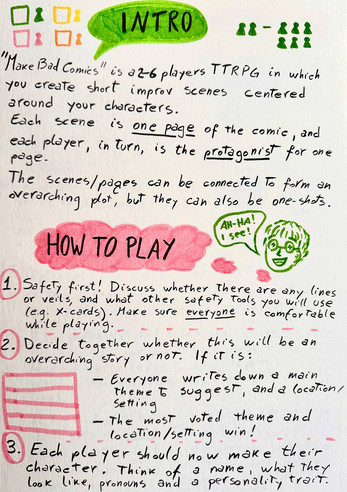 INTRO
"Make Bad Comics" is a 2-6 players TTRPG in which
you create short improv scenes centered
around your characters.
Each scene is one page of the comic, and
each player, in turn, is the protagonist for one
page.
The scenes/pages can be connected to form an
overarching plot, but they can also be one-shots.
HOW TO PLAY
AH-HA!
I see!
1. Safety first! Discuss whether there are any lines
or veils, and what other safety tools you will use
(e.g. X-cards). Make sure everyone is comfortable
while playing.
2. Decide together whether this will be an
overarching story or not. If it is:
– Everyone writes down a main
theme to suggest, and a location/
setting
– The most voted theme and
location/setting win!
3. Each player should now make their
character. Think of a name, what they
look like, pronouns and a personality trait.